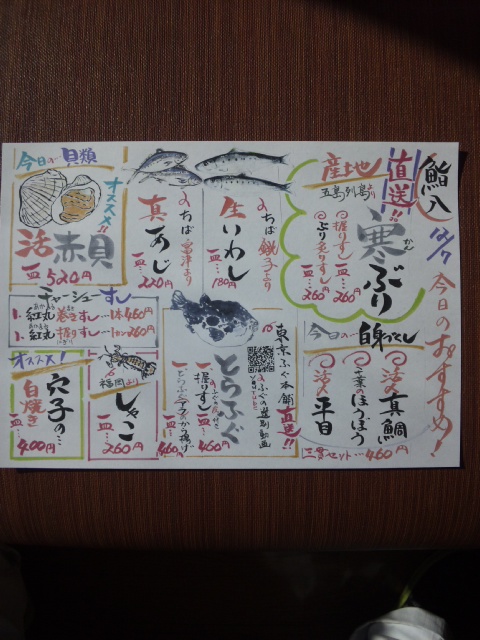 鮨八
12/7 今日のおすすめ!
産地直送!!
五島列島より
寒ぶり
かん
握りずし一皿…260円
炙りすし一皿…260円
今日の…白身づくし
活〆真鯛
千葉ほうぼう
活〆平目
三貫セット…460円
生いわし
ちば 銚子より
一皿…180円
真あじ
ちば 富津より
一皿…220円
今日の…貝類
オススメ!!
活赤貝
一皿…520円
チャーシューすし
1. 紅丸 巻きずし…一本460円
1. 紅丸 握りずし…一カン260円
東京ふぐ本舗直送!!
とらふぐ
握りずし
一皿…460円
とらふぐアラから揚げ
一皿…460円
福岡より
しゃこ
一皿…260円
オススメ!
穴子の…
白焼き
一皿…400円